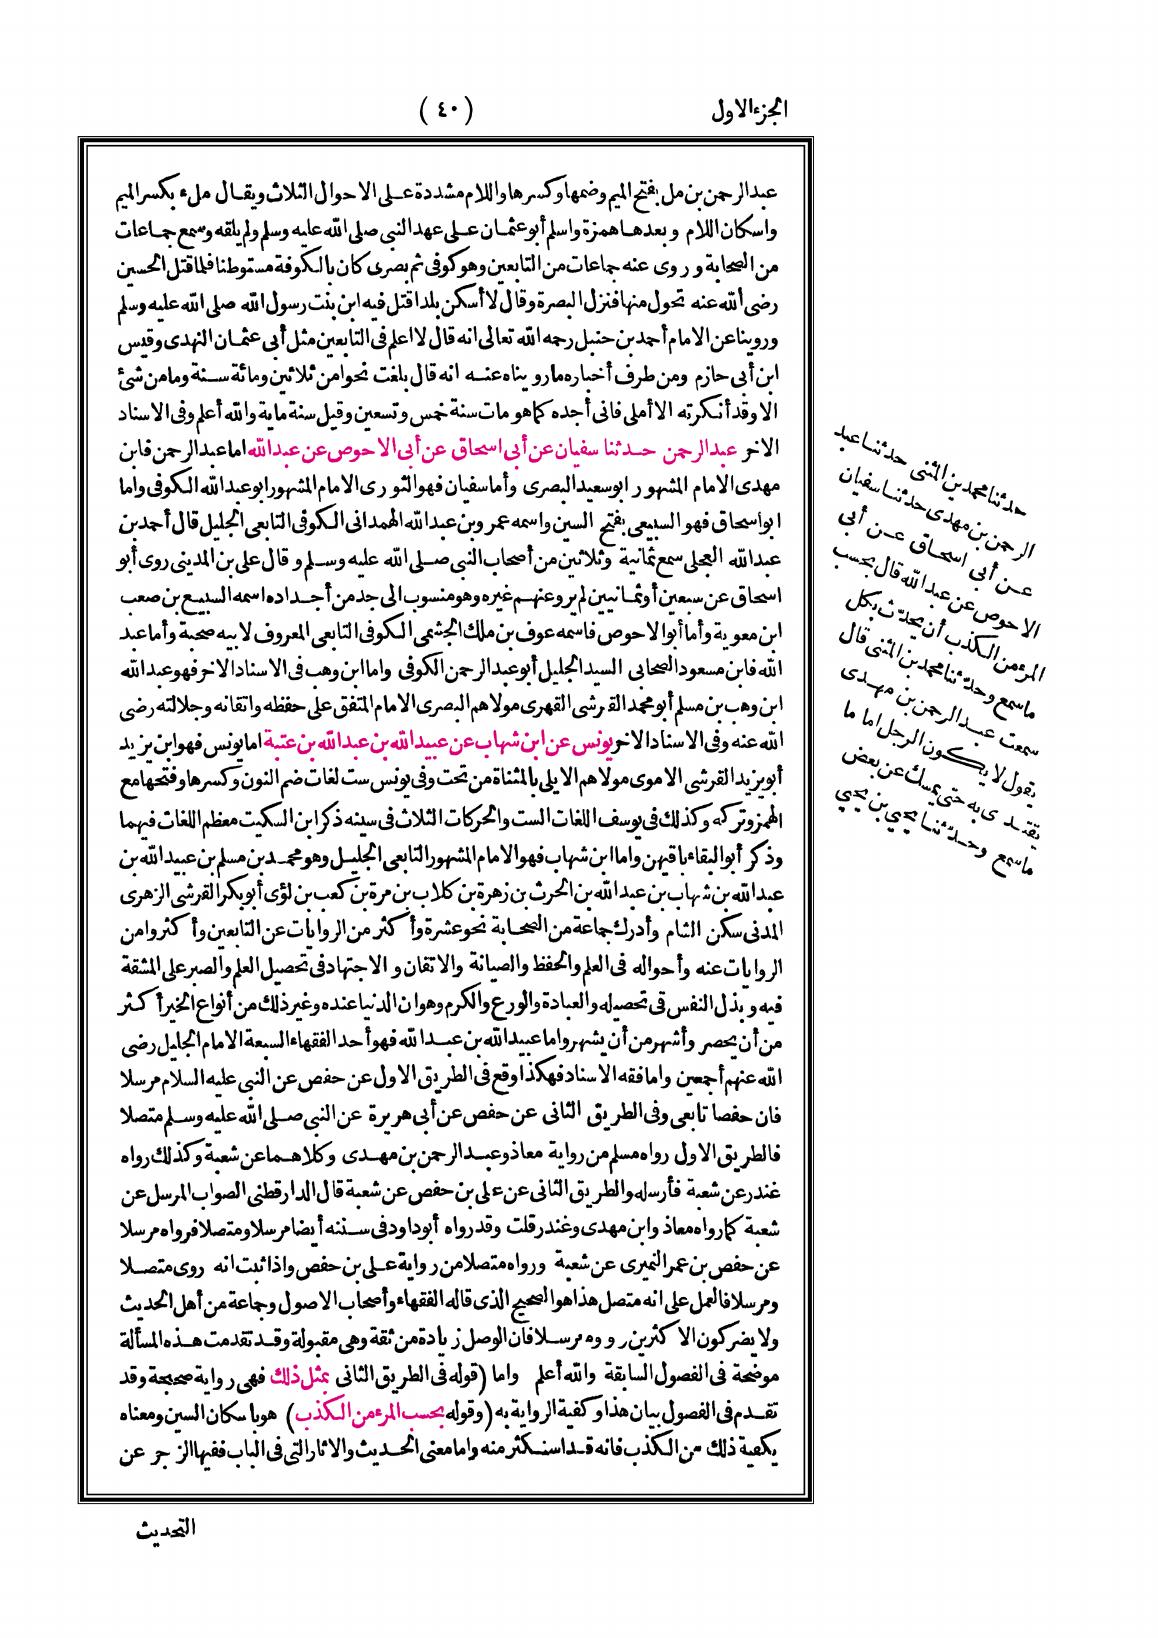 الجزء الاول
(٤٠)
عبدالرحمن بن مل بفتح الميم وضمها وكسرها واللام مشددة على الاحوال الثلاث ويقال ملء بكسر الميم
واسكان اللام وبعدها همزة واسلم أبو عثمان على عهد النبي صلى الله عليه وسلم ولم يلقه وسمع جماعات
من الصحابة وروى عنه جماعات من التابعين وهو كوفى ثم بصرى كان بالكوفة مستوطنا فلما قتل الحسين
رضى الله عنه تحول منها فنزل البصرة وقال لا أسكن بلدا قتل فيه ابن بنت رسول الله صلى الله عليه وسلم
وروينا عن الامام أحمد بن حنبل رحمه الله تعالى انه قال لا اعلم فى التابعين مثل أبى عثمان النهدى وقيس
ابن أبى حازم ومن طرف أخباره ماروينا ه عنه انه قال بلغت نحوا من ثلاثين ومائة سنة ومامن شئ
الا وقد أنكرته الا أملى فانى أجده كما هو مات سنة خمس وتسعين وقيل سنة ماية والله أعلم وفى الاسناد
الاخر عبدالرحمن حدثنا سفيان عن أبى اسحاق عن أبى الاحوص عن عبدالله اما عبدالرحمن فابن
مهدى الامام المشهور ابوسعيد البصرى وأما سفيان فهو الثورى الامام المشهور ابو عبدالله الكوفى واما
ابواسحاق فهو السبيعى بفتح السين واسمه عمرو بن عبدالله الهمدانى الكوفى التابعى الجليل قال أحمد بن
عبدالله العجلى سمع ثمانية وثلاثين من أصحاب النبى صلى الله عليه وسلم وقال على بن المدينى روى أبو
اسحاق عن سبعين أو ثمانين لم يرو عنهم غيره وهو منسوب الى جد من أجداده اسمه السبيع بن صعب
ابن معوية وأما أبو الاحوص فاسمه عوف بن ملك الجشمى الكوفى التابعى المعروف لابيه صحبة وأما عبد
الله فابن مسعود الصحابى السيد الجليل أبو عبدالرحمن الكوفى واما ابن وهب فى الاسناد الاخر فهو عبدالله
ابن وهب بن مسلم أبو محمد القرشى الفهرى مولاهم البصرى الامام المتفق على حفظه واتقانه وجلالته رضى
الله عنه وفى الاسناد الاخر يونس عن ابن شهاب عن عبيدالله بن عبدالله بن عتبة اما يونس فهو ابن يزيد
أبو يزيد القرشى الاموى مولاهم الايلى بالمثناة من تحت وفى يونس ست لغات ضم النون وكسرها وفتحها مع
الهمز وتركه وكذلك فى يوسف اللغات الست والحركات الثلاث فى سينه ذكر ابن السكيت معظم اللغات فيهما
وذكر أبو البقاء باقيهن واما ابن شهاب فهو الامام المشهور التابعى الجليل وهو محمد بن مسلم بن عبيدالله بن
عبدالله بن شهاب بن عبدالله بن الحرث بن زهرة بن كلاب بن مرة بن كعب بن لؤى أبو بكر القرشى الزهرى
المدنى سكن الشام وأدرك جماعة من الصحابة نحو عشرة وأكثر من الروايات عن التابعين وأكثروا من
الروايات عنه وأحواله فى العلم والحفظ والصيانة والاتقان والاجتهاد فى تحصيل العلم والصبر على المشقة
فيه وبذل النفس فى تحصيله والعبادة والورع والكرم وهوان الدنيا عنده وغير ذلك من أنواع الخير أكثر
من أن يحصر وأشهر من أن يشهر واما عبيدالله بن عبدالله فهو أحد الفقهاء السبعة الامام الجليل رضى
الله عنهم أجمعين واما فقه الاسناد فهكذا وقع فى الطريق الاول عن حفص عن النبى عليه السلام مرسلا
فان حفصا تابعى وفى الطريق الثانى عن حفص عن أبى هريرة عن النبى صلى الله عليه وسلم متصلا
فالطريق الاول رواه مسلم من رواية معاذ وعبدالرحمن بن مهدى وكلاهما عن شعبة وكذلك رواه
غندر عن شعبة فأرسله والطريق الثانى عن على بن حفص عن شعبة قال الدارقطنى الصواب المرسل عن
شعبة كما رواه معاذ وابن مهدى وغندر قلت وقد رواه أبو داود فى سننه أيضا مرسلا ومتصلا فرواه مرسلا
عن حفص بن عمر النميرى عن شعبة ورواه متصلا من رواية على بن حفص واذا ثبت انه روى متصلا
ومرسلا فالعمل على انه متصل هذا هو الصحيح الذى قاله الفقهاء وأصحاب الاصول وجماعة من أهل الحديث
ولا يضر كون الاكثرين رووه مرسلا فان الوصل زيادة من ثقة وهى مقبولة وقد تقدمت هذه المسألة
موضحة فى الفصول السابقة والله أعلم واما (قوله فى الطريق الثانى بمثل ذلك فهى رواية صحيحة وقد
تقدم فى الفصول بيان هذا وكفية الرواية به (وقوله بحسب المرء من الكذب) هو باسكان السين ومعناه
يكفية ذلك من الكذب فانه قد استكثر منه واما معنى الحديث والاثار التى فى الباب ففيها الزجر عن
التحديث
حدثنا محمد بن المثنى حدثنا عبد
الرحمن بن مهدى حدثنا سفيان
عن أبى اسحاق عن أبى
الاحوص عن عبدالله قال بحسب
المرء من الكذب أن يحدث بكل
ماسمع وحدثنا محمد بن المثنى قال
سمعت عبدالرحمن بن مهدى
يقول لا يكون الرجل اما ما
يقتدى به حتى يمسك عن بعض
ماسمع وحدثنا يحيى بن يحيى